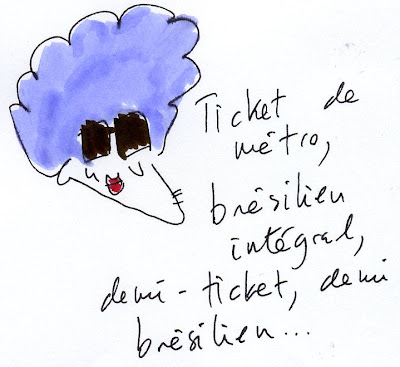 Ticket de
métro,
brésilien
intégral,
demi-ticket, demi
brésilien...